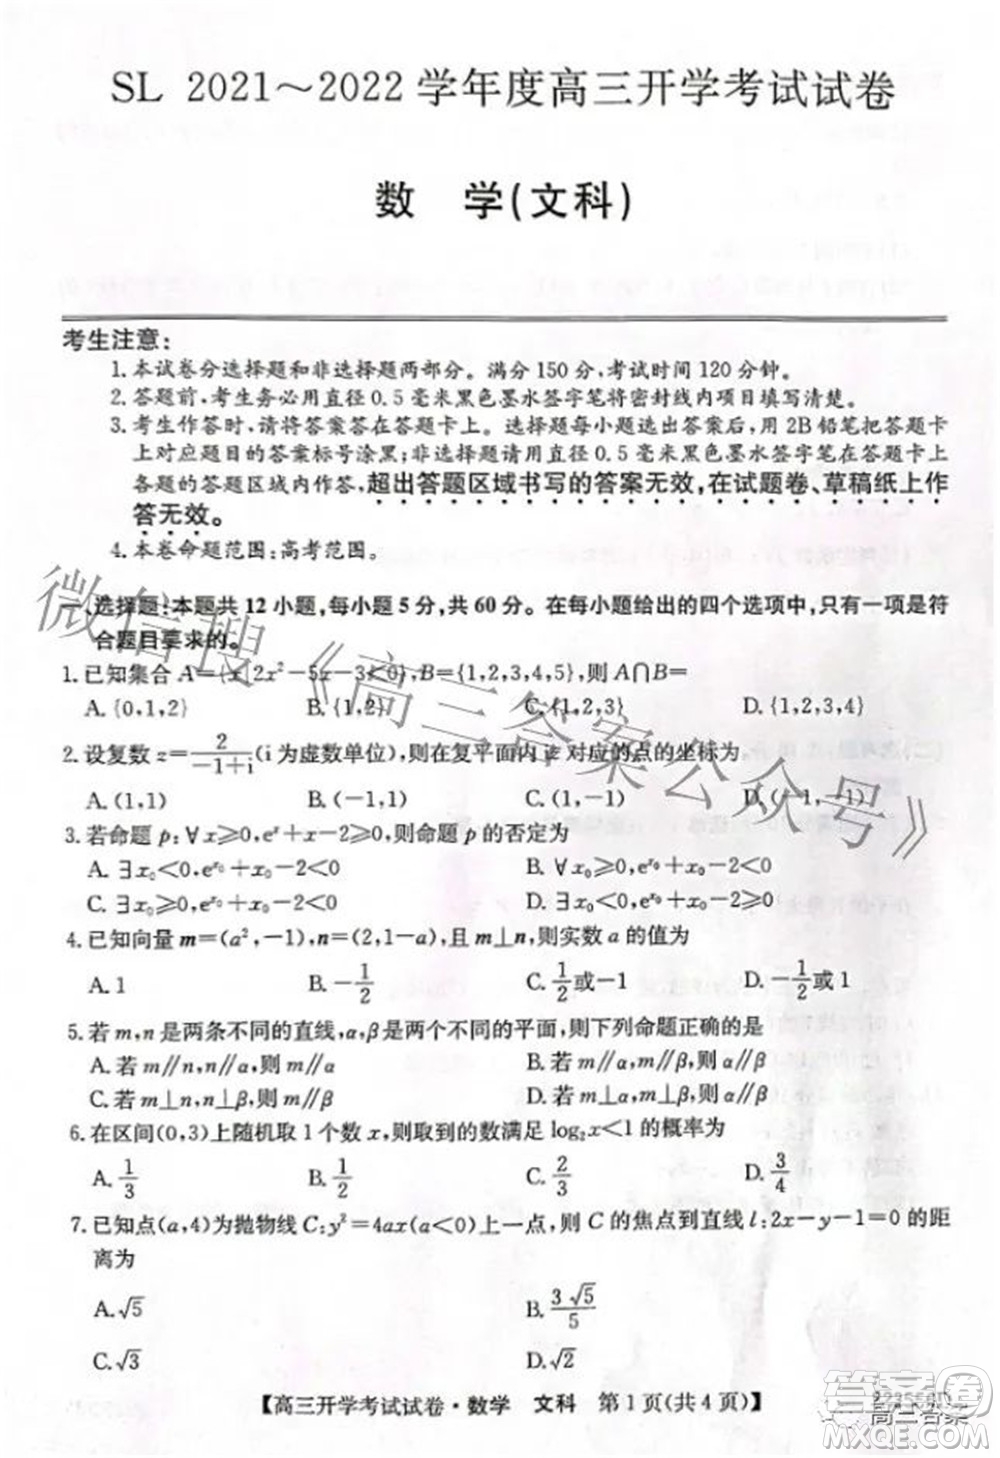 SL 2021～2022 学年度高三开学考试试卷
数 学(文科)
考生注意:
1.本试卷分选择题和非选择题两部分。满分150分,考试时间120分钟。
2.答题前,考生务必用直径0.5毫米黑色墨水签字笔将密封线内项目填写清楚。
3.考生作答时,请将答案答在答题卡上。选择题每小题选出答案后,用2B铅笔把答题卡
上对应题目的答案标号涂黑;非选择题请用直径0.5毫米黑色墨水签字笔在答题卡上各
题的答题区域内作答,超出答题区域书写的答案无效,在试题卷、草稿纸上作
答无效。
4.本卷命题范围:高考范围。
一、选择题:本题共12小题,每小题5分,共60分。在每小题给出的四个选项中,只有一项是符
合题目要求的。
1.已知集合 A={x|2x²-5x-3<0},B={1,2,3,4,5},则A∩B=
A.{0,1,2} B.{1,2} C.{1,2,3} D.{1,2,3,4}
2.设复数 z=2/(-1+i)(i为虚数单位),则在复平面内 z 对应的点的坐标为
A.(1,1) B.(-1,1) C.(1,-1) D.(-1,-1)
3.若命题 p:∀x≥0,eˣ+x-2≥0,则命题 p 的否定为
A.∃x₀<0,e^x₀+x₀-2<0 B.∀x₀≥0,e^x₀+x₀-2<0
C.∃x₀≥0,e^x₀+x₀-2<0 D.∃x₀≥0,e^x₀+x₀-2≥0
4.已知向量 m=(a²,-1),n=(2,1-a),且 m⊥n,则实数 a 的值为
A.1 B.-1/2 C.1/2或-1 D.-1/2或1
5.若 m,n 是两条不同的直线,α,β是两个不同的平面,则下列命题正确的是
A.若 m∥n,n∥α,则 m∥α B.若 m∥α,m∥β,则 α∥β
C.若 m⊥n,n⊥β,则 m∥β D.若 m⊥α,m⊥β,则 α∥β
6.在区间(0,3)上随机取1个数 x,则取到的数满足 log₂x<1 的概率为
A.1/3 B.1/2 C.2/3 D.3/4
7.已知点(a,4)为抛物线 C:y²=4ax(a<0)上一点,则 C 的焦点到直线 l:2x-y-1=0 的距
离为
A.√5 B.3√5/5
C.√3 D.√2
【高三开学考试试卷·数学 文科 第1页(共4页)】
微信搜《高三答案公众号》
答案圈
高三答案
MXQE.COM